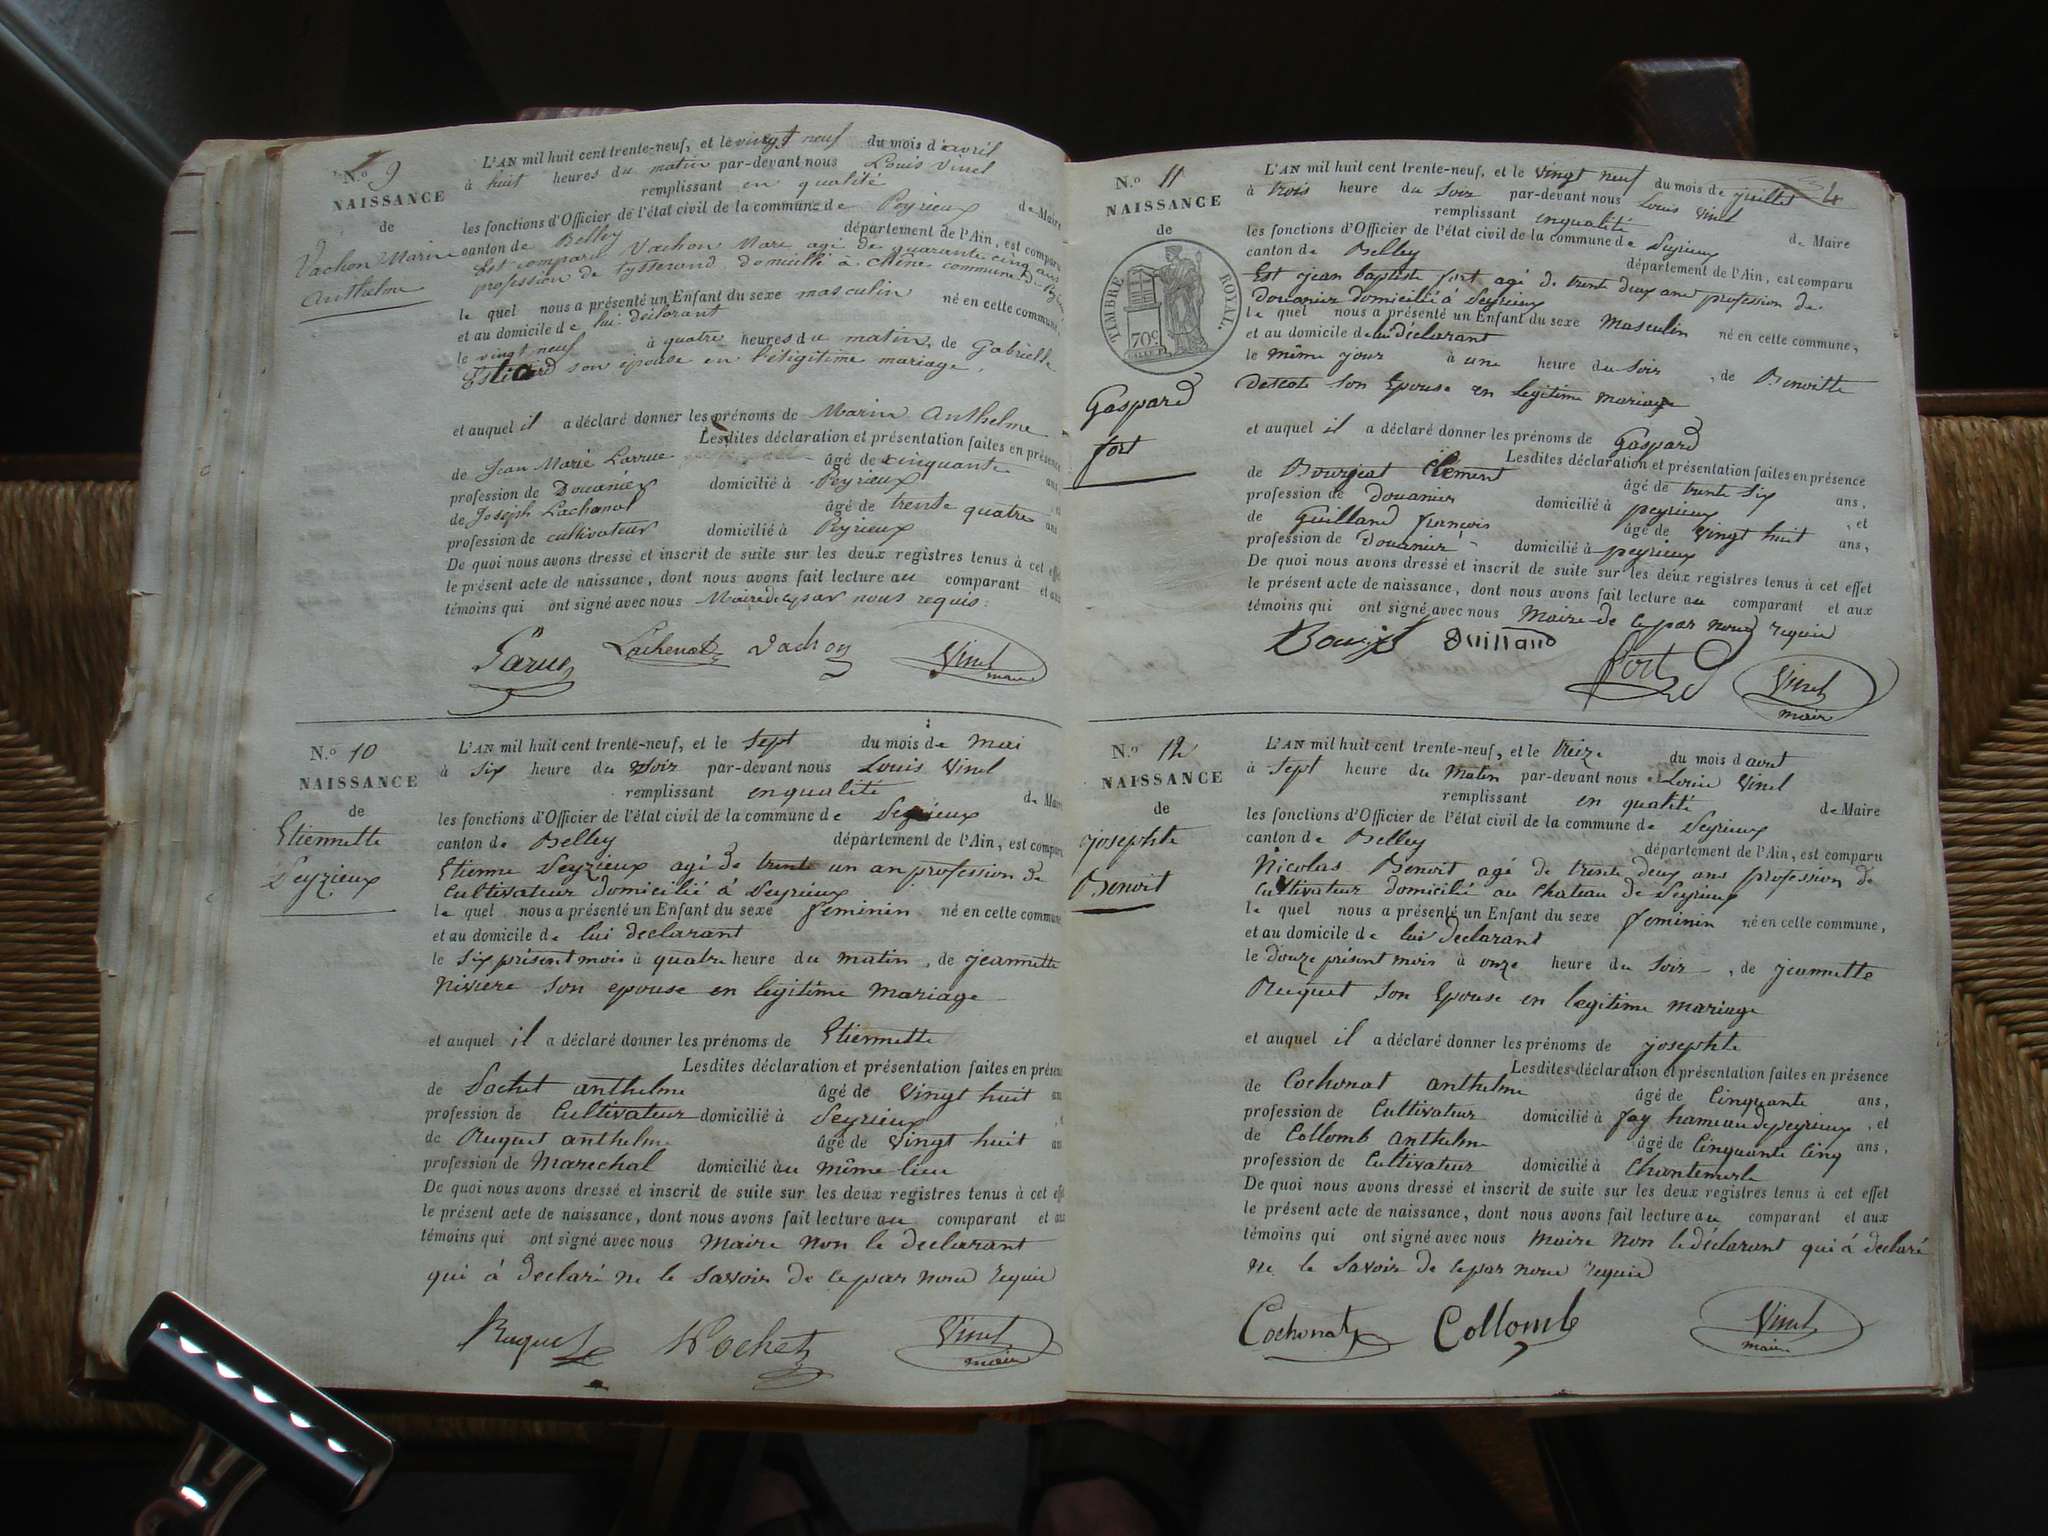 N.º 9
NAISSANCE
de
Vachon Marin
Anthelme
L'AN mil huit cent trente-neuf, et le vingt neuf du mois d'avril
à huit heures du matin par-devant nous Louis Vinel
remplissant en qualité de Maire
les fonctions d'Officier de l'état civil de la commune de Peyrieux
canton de Belley département de l'Ain, est comparu
Est comparu Vachon Marc agé de quarante cinq ans
profession de tysserand domicilié à Chêne commune de
le quel nous a présenté un Enfant du sexe masculin né en cette commune,
et au domicile de lui déclarant
le vingt neuf à quatre heures du matin, de Gabrielle
son épouse en légitime mariage.
et auquel il a déclaré donner les prénoms de Marin Anthelme
Lesdites déclaration et présentation faites en présence
de Jean Marie Larrue âgé de cinquante ans,
profession de Douanier domicilié à Peyrieux
de Joseph Lachanal âgé de trente quatre ans
profession de cultivateur domicilié à Peyrieux
De quoi nous avons dressé et inscrit de suite sur les deux registres tenus à cet effet
le présent acte de naissance, dont nous avons fait lecture au comparant et aux
témoins qui ont signé avec nous Maire de ce par nous requis.
Larue Lachenal Vachon Vinel
maire
N.º 10
NAISSANCE
de
Etiennette
Peyrieux
L'AN mil huit cent trente-neuf, et le sept du mois de mai
à six heure du soir par-devant nous Louis Vinel
remplissant en qualité de Maire
les fonctions d'Officier de l'état civil de la commune de Peyrieux
canton de Belley département de l'Ain, est comparu
Etienne Peyrieux agé de trente un an profession de
Cultivateur domicilié à Peyrieux
le quel nous a présenté un Enfant du sexe feminin né en cette commune
et au domicile de lui declarant
le six présent mois à quatre heure du matin, de jeannette
Riviere son epouse en légitime mariage
et auquel il a déclaré donner les prénoms de Etiennette
Lesdites déclaration et présentation faites en présence
de Pochet anthelme âgé de vingt huit ans
profession de Cultivateur domicilié à Peyrieux
de Ruquet anthelme âgé de vingt huit ans
profession de Marechal domicilié au même lieu
De quoi nous avons dressé et inscrit de suite sur les deux registres tenus à cet effet
le présent acte de naissance, dont nous avons fait lecture au comparant et aux
témoins qui ont signé avec nous maire non le declarant
qui à declaré ne le savoir de ce par nous requis
Ruquet Pochet Vinel
maire
4
N.º 11
NAISSANCE
de
TIMBRE ROYAL.
70c
Gaspard
fort
L'AN mil huit cent trente-neuf, et le vingt neuf du mois de juillet
à trois heure du soir par-devant nous Louis Vinel
remplissant en qualité de Maire
les fonctions d'Officier de l'état civil de la commune de Peyrieux
canton de Belley département de l'Ain, est comparu
Est jean baptiste fort agé de trente deux ans profession de
Douanier domicilié à Peyrieux
le quel nous a présenté un Enfant du sexe Masculin né en cette commune,
et au domicile de lui déclarant
le même jour à une heure du soir, de Benoitte
son Epouse en légitime mariage
et auquel il a déclaré donner les prénoms de Gaspard
Lesdites déclaration et présentation faites en présence
de Bourgeat Clement âgé de trente six ans,
profession de douanier domicilié à peyrieux, et
de Guilland françois âgé de vingt huit ans,
profession de Douanier domicilié à peyrieux
De quoi nous avons dressé et inscrit de suite sur les deux registres tenus à cet effet
le présent acte de naissance, dont nous avons fait lecture au comparant et aux
témoins qui ont signé avec nous Maire de ce par nous requis
Guilland
fort Vinel
maire
N.º 12
NAISSANCE
de
josephte
Benoit
L'AN mil huit cent trente-neuf, et le treize du mois d'aout
à sept heure du Matin par-devant nous Louis Vinel
remplissant en qualité de Maire
les fonctions d'Officier de l'état civil de la commune de Peyrieux
canton de Belley département de l'Ain, est comparu
Nicolas Benoit agé de trente deux ans profession de
Cultivateur domicilié au chateau de Peyrieux
le quel nous a présenté un Enfant du sexe feminin né en cette commune,
et au domicile de lui declarant
le douze présent mois à onze heure du soir, de jeannette
Ruquet son Epouse en legitime mariage
et auquel il a déclaré donner les prénoms de josephte
Lesdites déclaration et présentation faites en présence
de Cochonat anthelme âgé de Cinquante ans,
profession de Cultivateur domicilié à fay hameau de peyrieux, et
de Collomb anthelme âgé de Cinquante Cinq ans,
profession de Cultivateur domicilié à Chantemerle
De quoi nous avons dressé et inscrit de suite sur les deux registres tenus à cet effet
le présent acte de naissance, dont nous avons fait lecture au comparant et aux
témoins qui ont signé avec nous maire non le déclarant qui à declaré
ne le savoir de ce par nous requis
Cochonat Collomb Vinel
maire